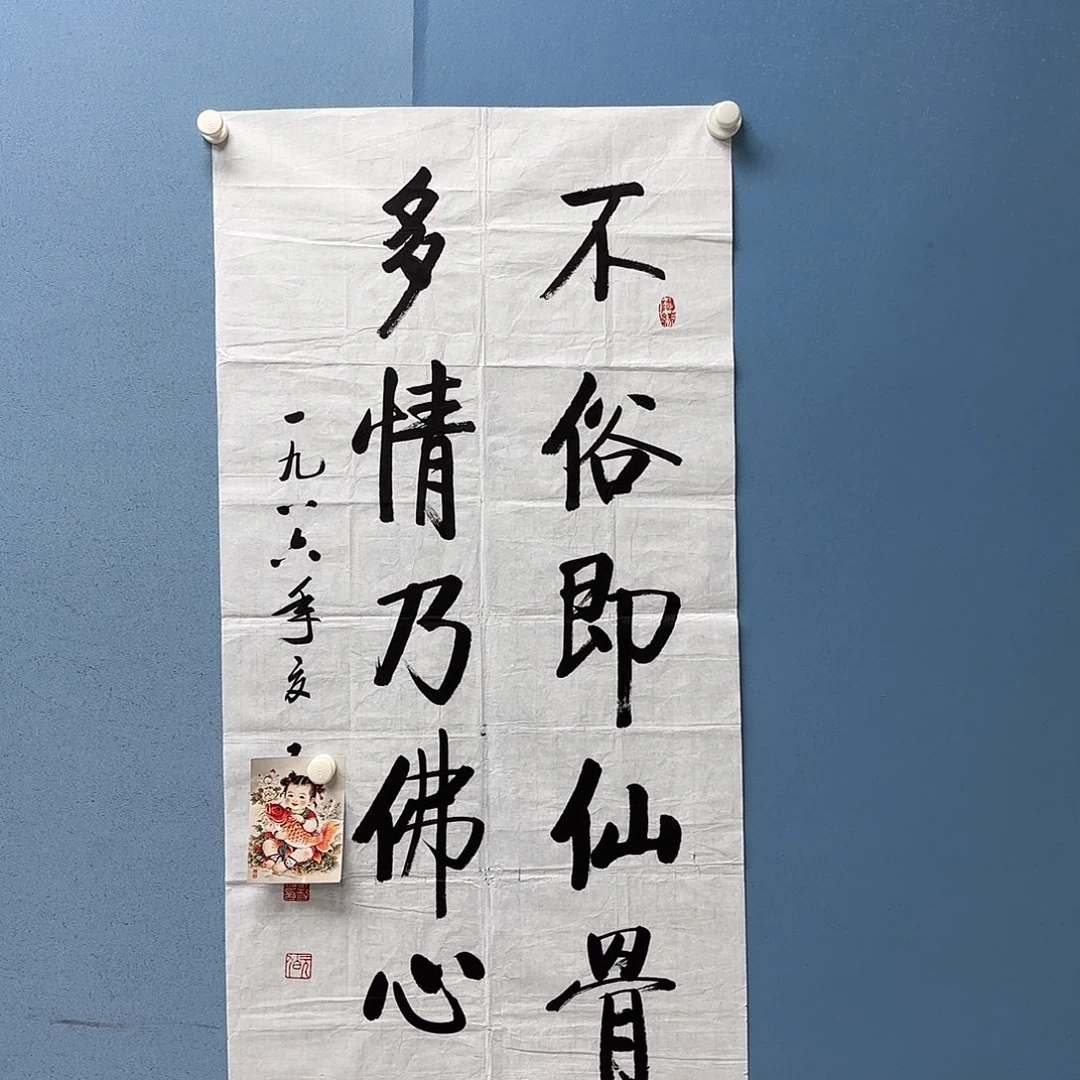 不俗即仙骨
多情乃佛心
一九八六年夏